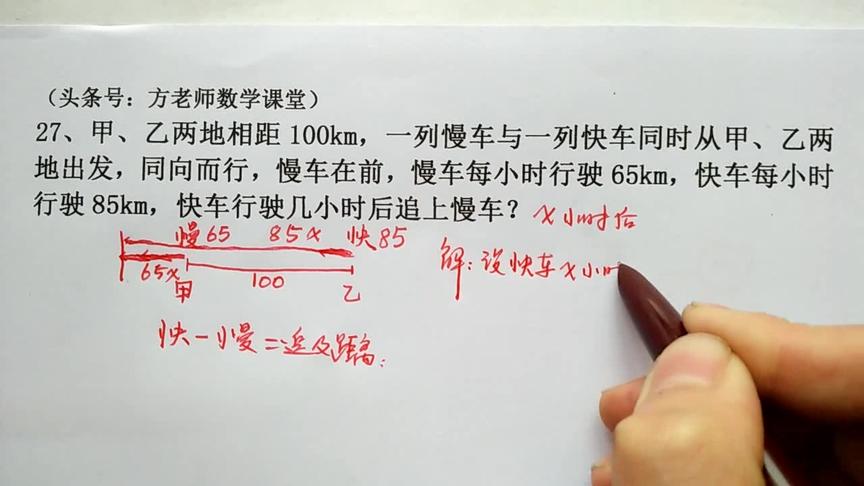 （头条号：方老师数学课堂）
27、甲、乙两地相距 100km，一列慢车与一列快车同时从甲、乙两
地出发，同向而行，慢车在前，慢车每小时行驶 65km，快车每小时
行驶 85km，快车行驶几小时后追上慢车？ x小时后
慢65 85x 快85
解：设快车x小时
65x 甲 100 乙
快－慢＝追及距离：